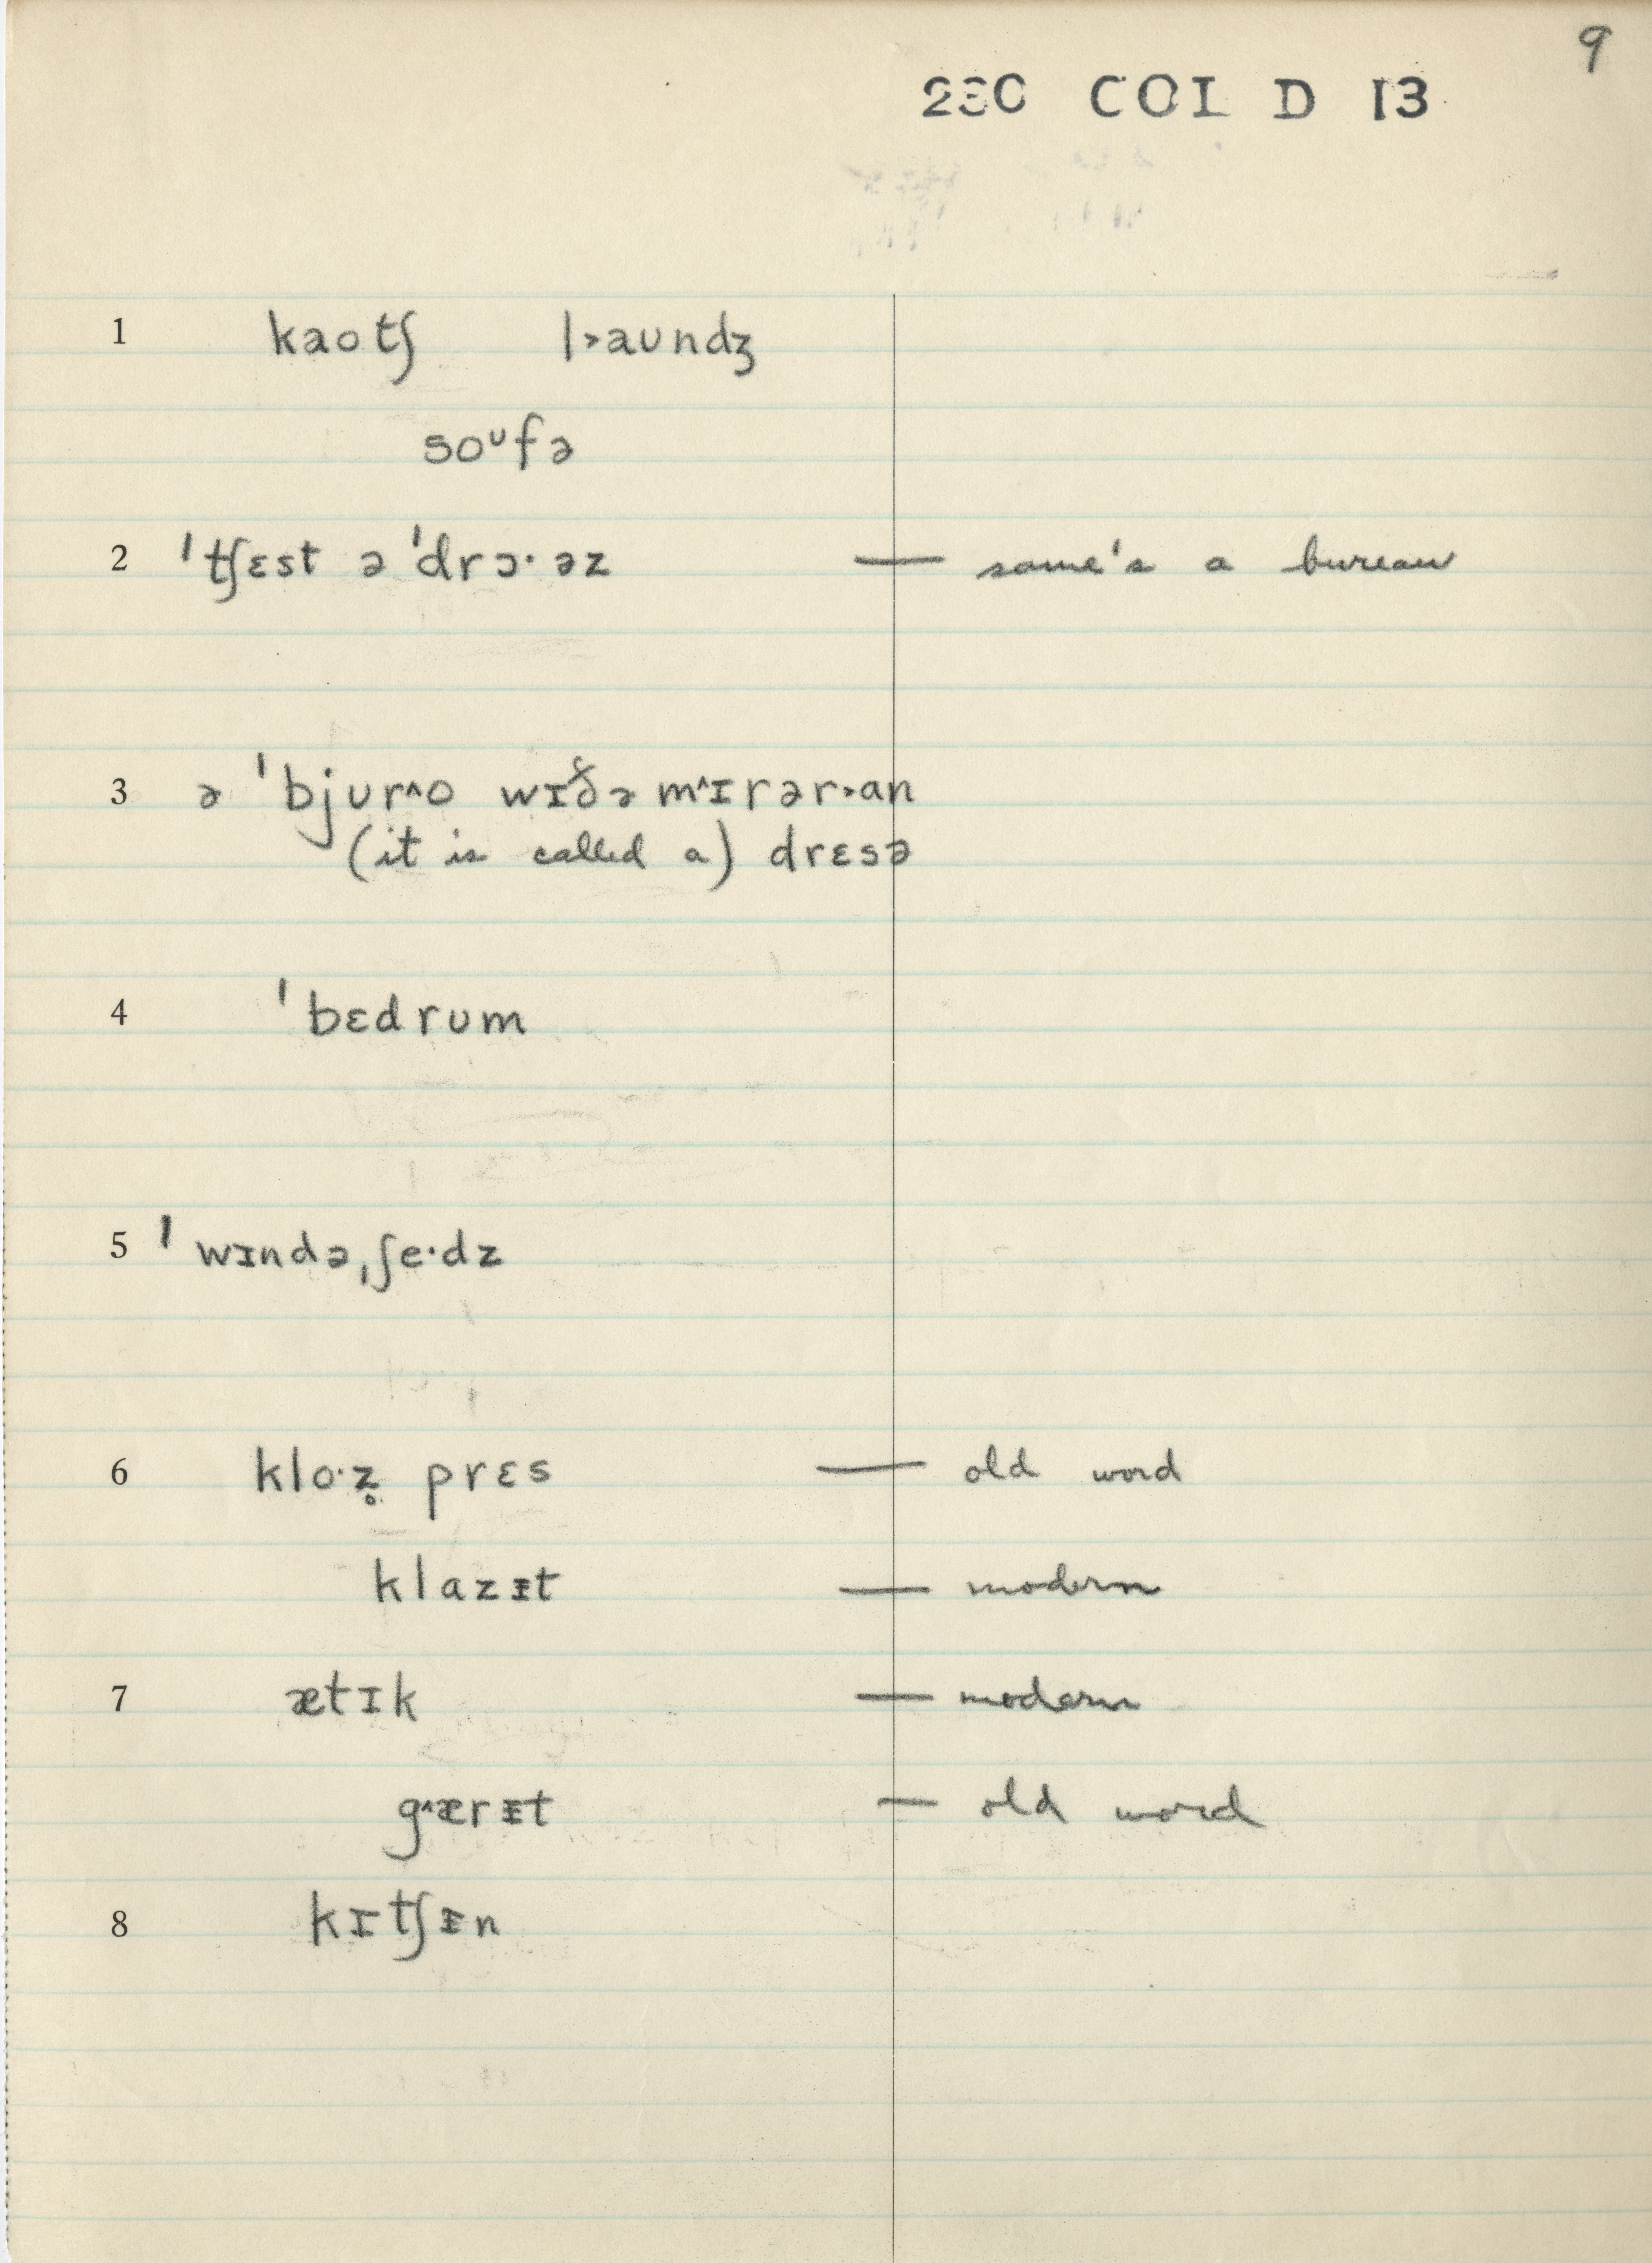 9
230 COL D 13
1 kaotʃ l˃aʊndʒ
soᶷfə
2 ˈtʃɛst ə ˈdrɔ· əz — same's a bureau
3 ə ˈbjʊr˄o wɪð̌ə m˄ɪrər˃an
(it is called a) drɛsə
4 ˈbɛdrʊm
5 ˈwɪndəˌʃe·dz
6 klo·z̥ prɛs — old word
klazᵻt — modern
7 ætɪk — modern
g˄ærᵻt — old word
8 kɪtʃᵻn